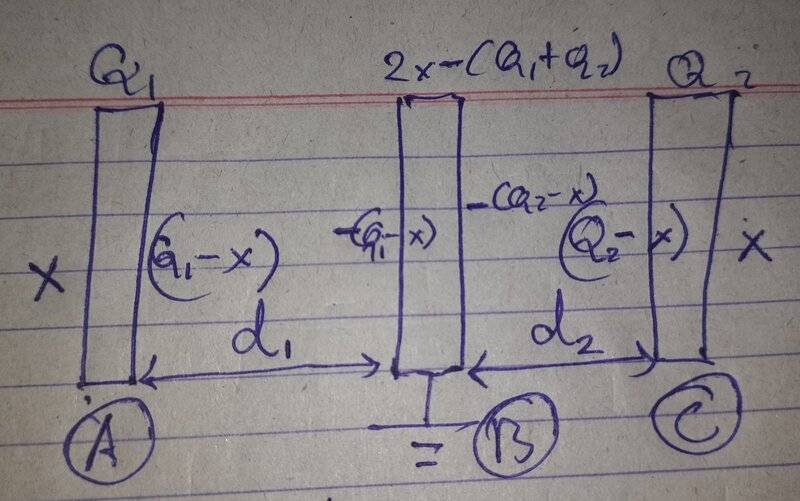 Q₁ 2x-(Q₁+Q₂) Q₂
-(Q₂-x)
x (Q₁-x) -(Q₁-x) (Q₂-x) x
d₁ d₂
A B C